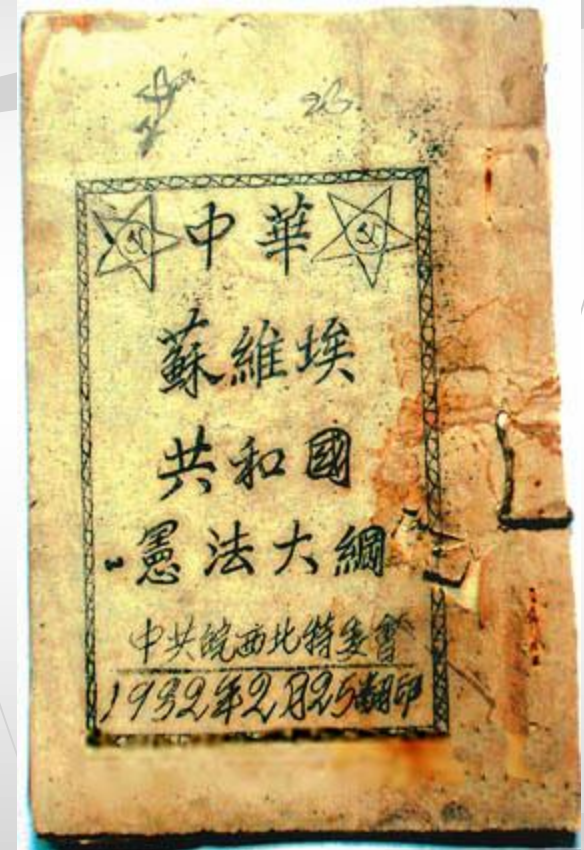 中華
蘇維埃
共和國
憲法大綱
中共皖西北特委會
1932年2月25翻印